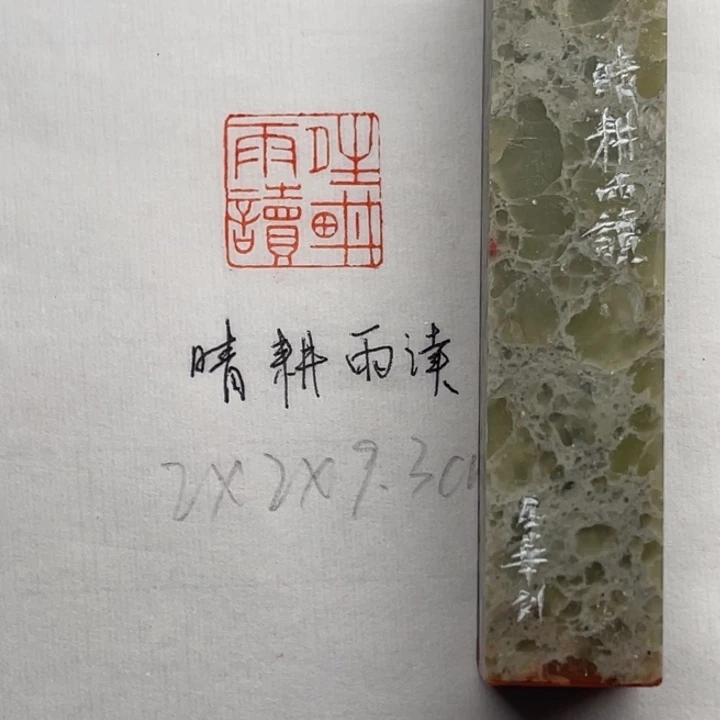 夝畊
雨讀
晴耕雨读
2X2X9.3c
晴耕雨讀
華刻